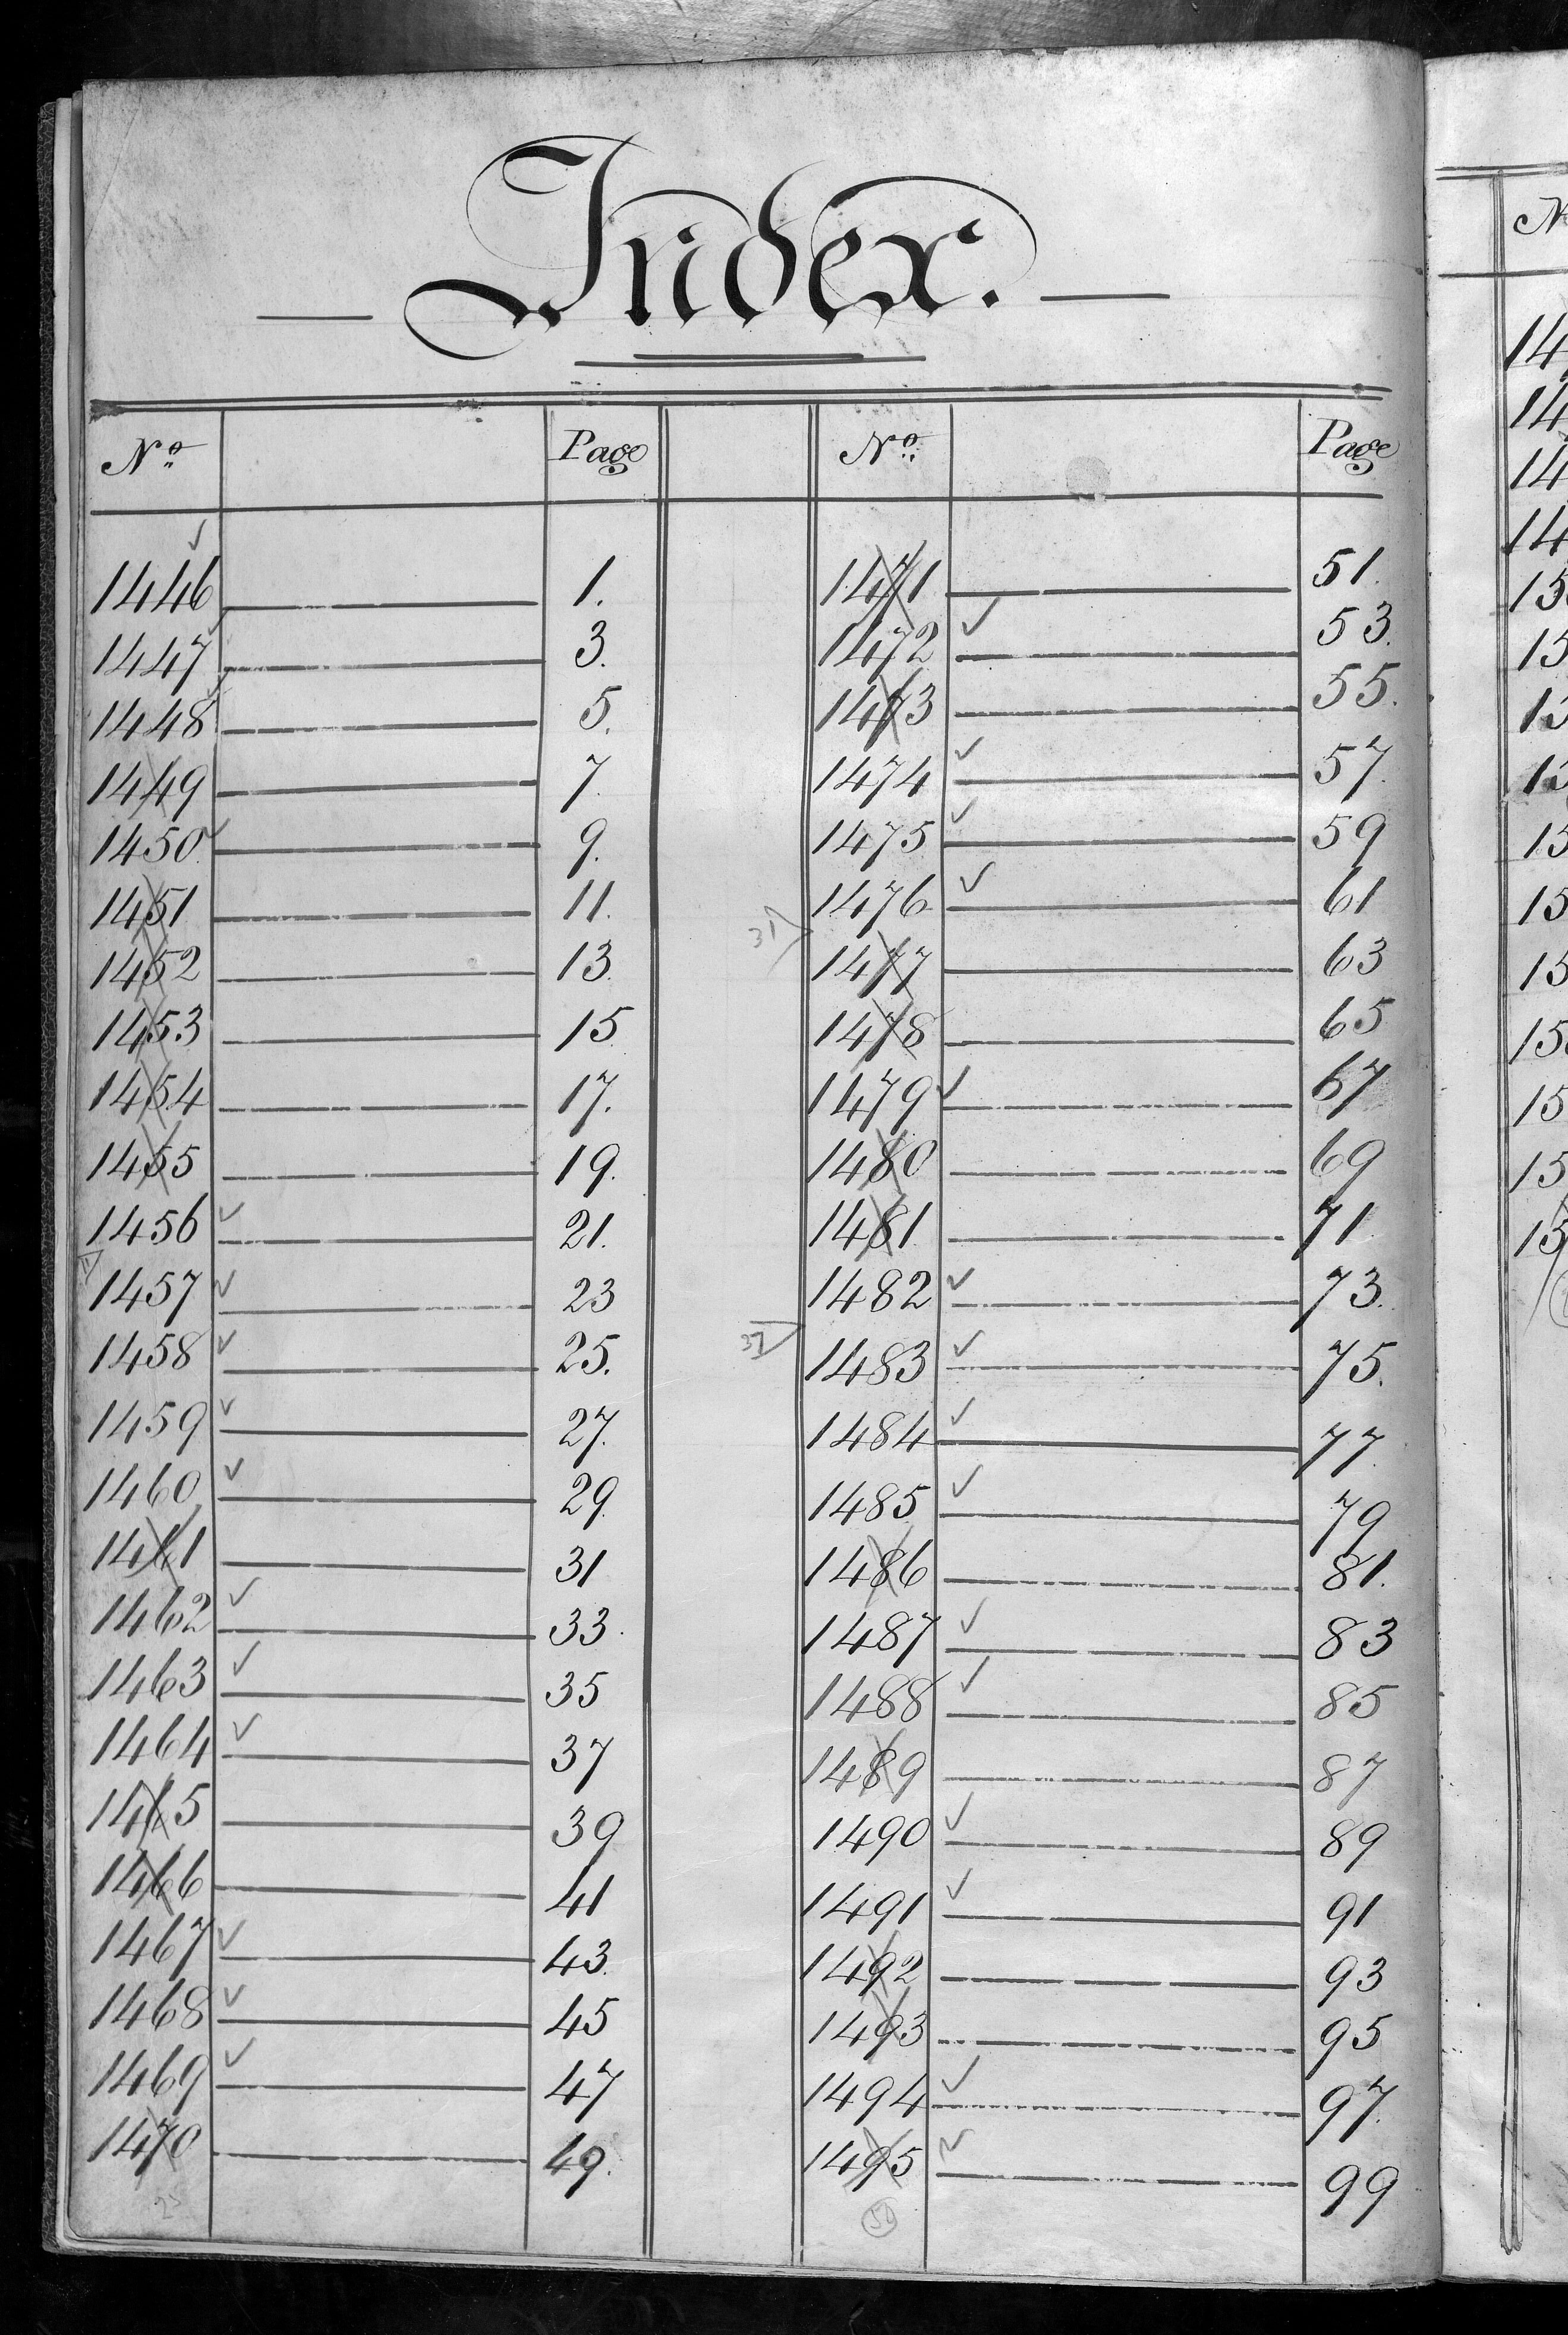 Index.
No. Page No. Page
1446 1. 1471 51.
1447 3. 1472 53.
1448 5. 1473 55.
1449 7. 1474 57.
1450. 9. 1475 59
1451 11. 1476 61
31
1452 13. 1477 63
1453 15 1478 65
1454 17. 1479 67
1455 19. 1480 69
1456 21. 1481 71
1457 23 1482 73.
1458 25. 1483 75.
1459 27. 1484 77.
1460 29. 1485 79
1461 31 1486 81.
1462 33. 1487 83
1463 35 1488 85
1464 37 1489 87
1465 39 1490 89
1466 41 1491 91
1467 43. 1492 93
1468 45 1493 95
1469 47 1494 97.
1470 49. 1495 99
25
N
14
14
14
14
15
15
15
15
15
15
15
15
15
15
15